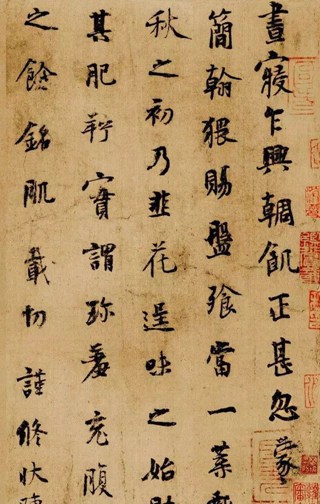 晝寢乍興輖飢正甚忽蒙
簡翰猥賜盤飧當一葉
秋之初乃韭花逞味之始助
其肥羜實謂珍羞充腹
之餘銘肌載切謹修狀